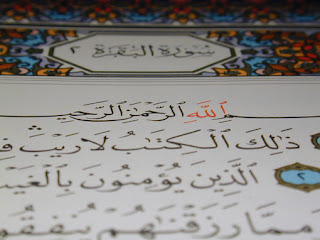 سُورَةُ الْبَقَرَةِ ٢
ـمِ ٱللَّهِ ٱلرَّحْمَٰنِ ٱلرَّحِيـ
ذَٰلِكَ ٱلْكِتَٰبُ لَا رَيْبَ فِ
٢ ٱلَّذِينَ يُؤْمِنُونَ بِٱلْغَيْـ
مِمَّا رَزَقْنَٰهُمْ يُنفِقُو